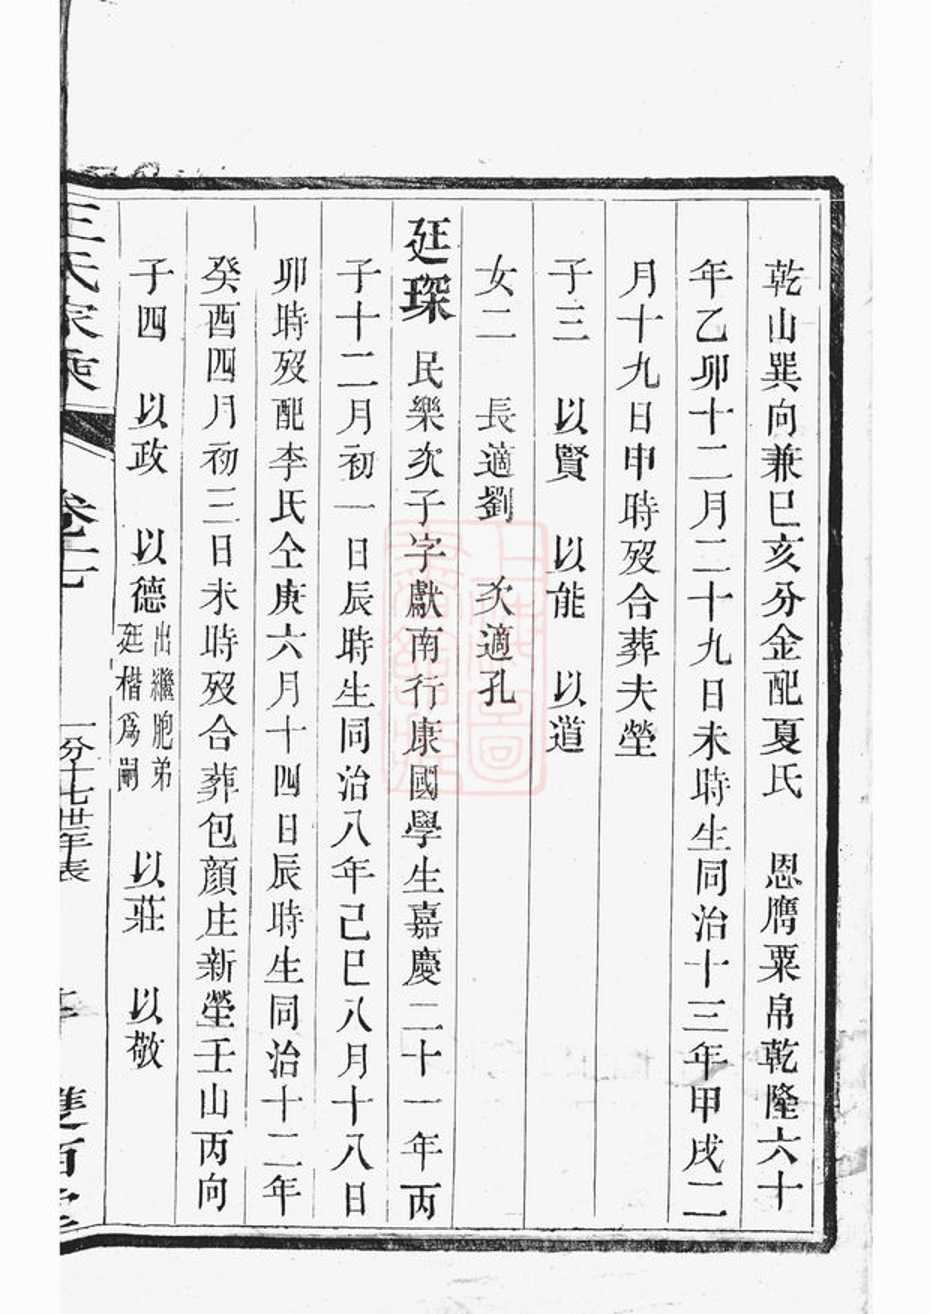 乾山巽向兼巳亥分金配夏氏　恩膺粟帛乾隆六十
年乙卯十二月二十九日未時生同治十三年甲戌二
月十九日申時歿合葬夫塋
子三　以賢　以能　以道
女二　長適劉　次適孔
廷琛　民樂次子字獻南行康國學生嘉慶二十一年丙
子十二月初一日辰時生同治八年己巳八月十八日
卯時歿配李氏仝庚六月十四日辰時生同治十二年
癸酉四月初三日未時歿合葬包顏庄新塋壬山丙向
子四　以政　以德出繼胞弟廷楷爲嗣　以莊　以敬
王氏家乘　卷十七　一分十七世年表　雙百堂
上海圖書館藏